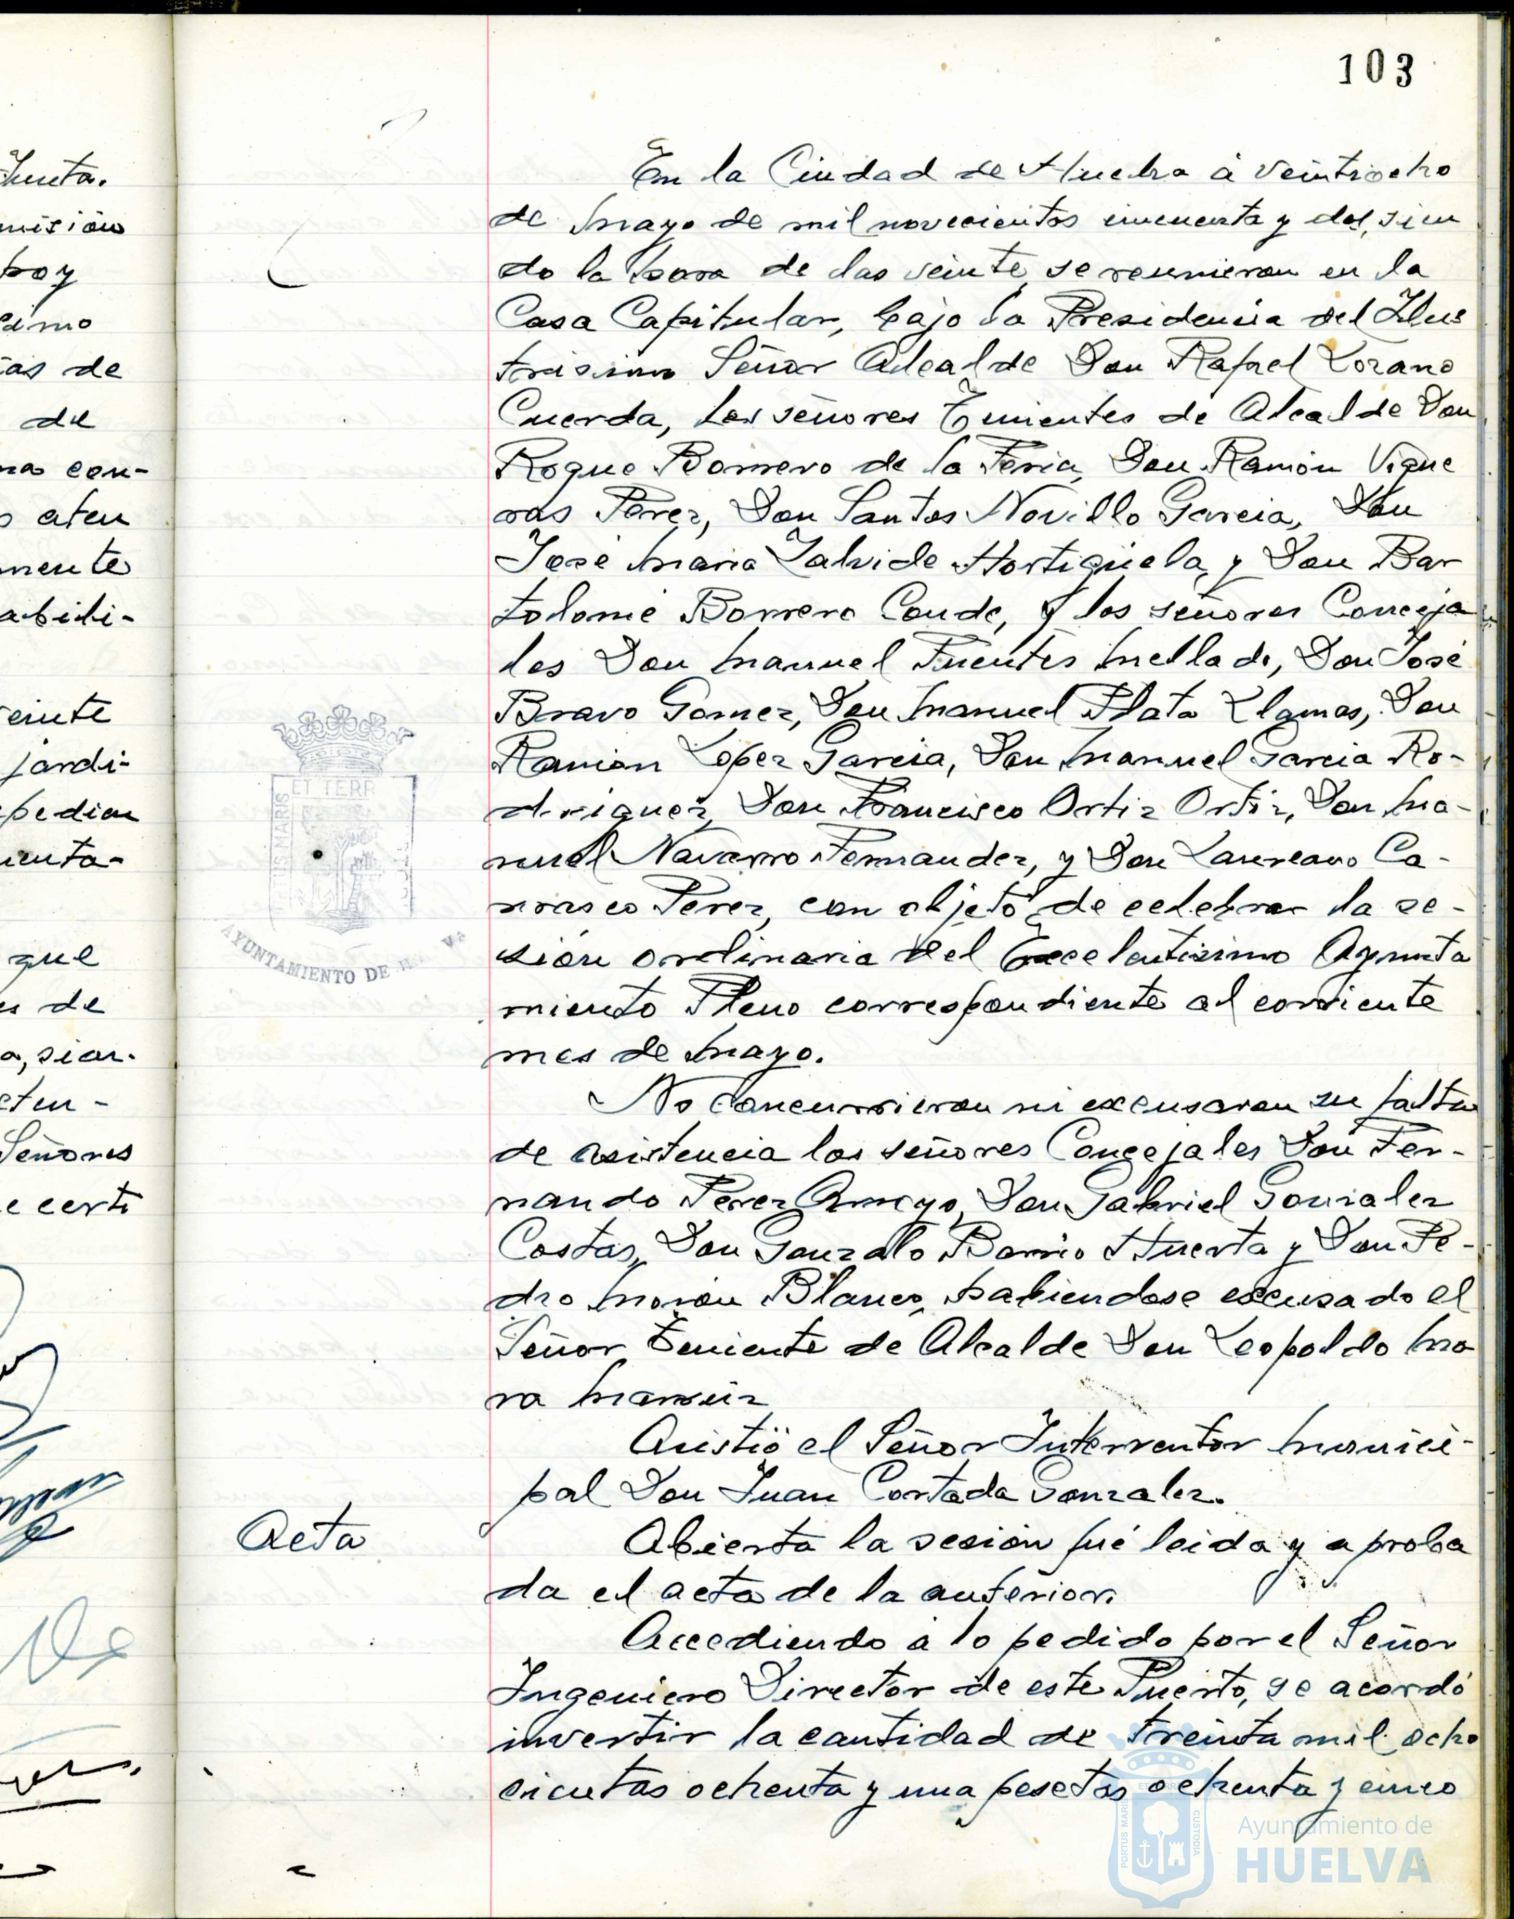 103
En la Ciudad de Huelva á veintiocho
de Mayo de mil novecientos cincuenta y dos, sien
do la hora de las veinte, se reunieron en la
Casa Capitular, bajo la Presidencia del Ilus
trisimo Señor Alcalde Don Rafael Lozano
Cuerda, los señores Tenientes de Alcalde Don
Roque Borrero de la Feria, Don Ramón Vigue
ras Perez, Don Santos Novillo Garcia, Don
José Maria Zalvide Hortigüela, y Don Bar
tolomé Borrero Conde, y los señores Conceja
les Don Manuel Fuentes Mellado, Don José
Bravo Gomez, Don Manuel Plata Llamas, Don
Ramón Lopez Garcia, Don Manuel Garcia Ro-
driguez, Don Francisco Ortiz Ortiz, Don Ma-
nuel Navarro Fernandez, y Don Laureano Ca-
rrasco Perez, con objeto de celebrar la se-
sión ordinaria del Excelentisimo Ayunta
miento Pleno correspondiente al corriente
mes de Mayo.
No concurrieron ni excusaron su falta
de asistencia los señores Concejales Don Fer-
nando Perez Arroyo, Don Gabriel Gonzalez
Costas, Don Gonzalo Barrio Huerta y Don Pe-
dro Morón Blanco, habiendose excusado el
Señor Teniente de Alcalde Don Leopoldo Mo
ra
Asistió el Señor Interventor Munici-
pal Don Juan Cortada Gonzalez.
Acta
Abierta la sesión fué leida y aproba
da el acta de la anterior.
Accediendo á lo pedido por el Señor
Ingeniero Director de este Puerto, se acordó
invertir la cantidad de treinta mil ocho
cientas ochenta y una pesetas ochenta y cinco
ET TERR
AYUNTAMIENTO DE
Junta.
misión
hoy
de
de
con-
aten
mente
jardi-
que
de
Señores
certi
PORTUS MARIS
CUSTODIA
Ayuntamiento de
HUELVA